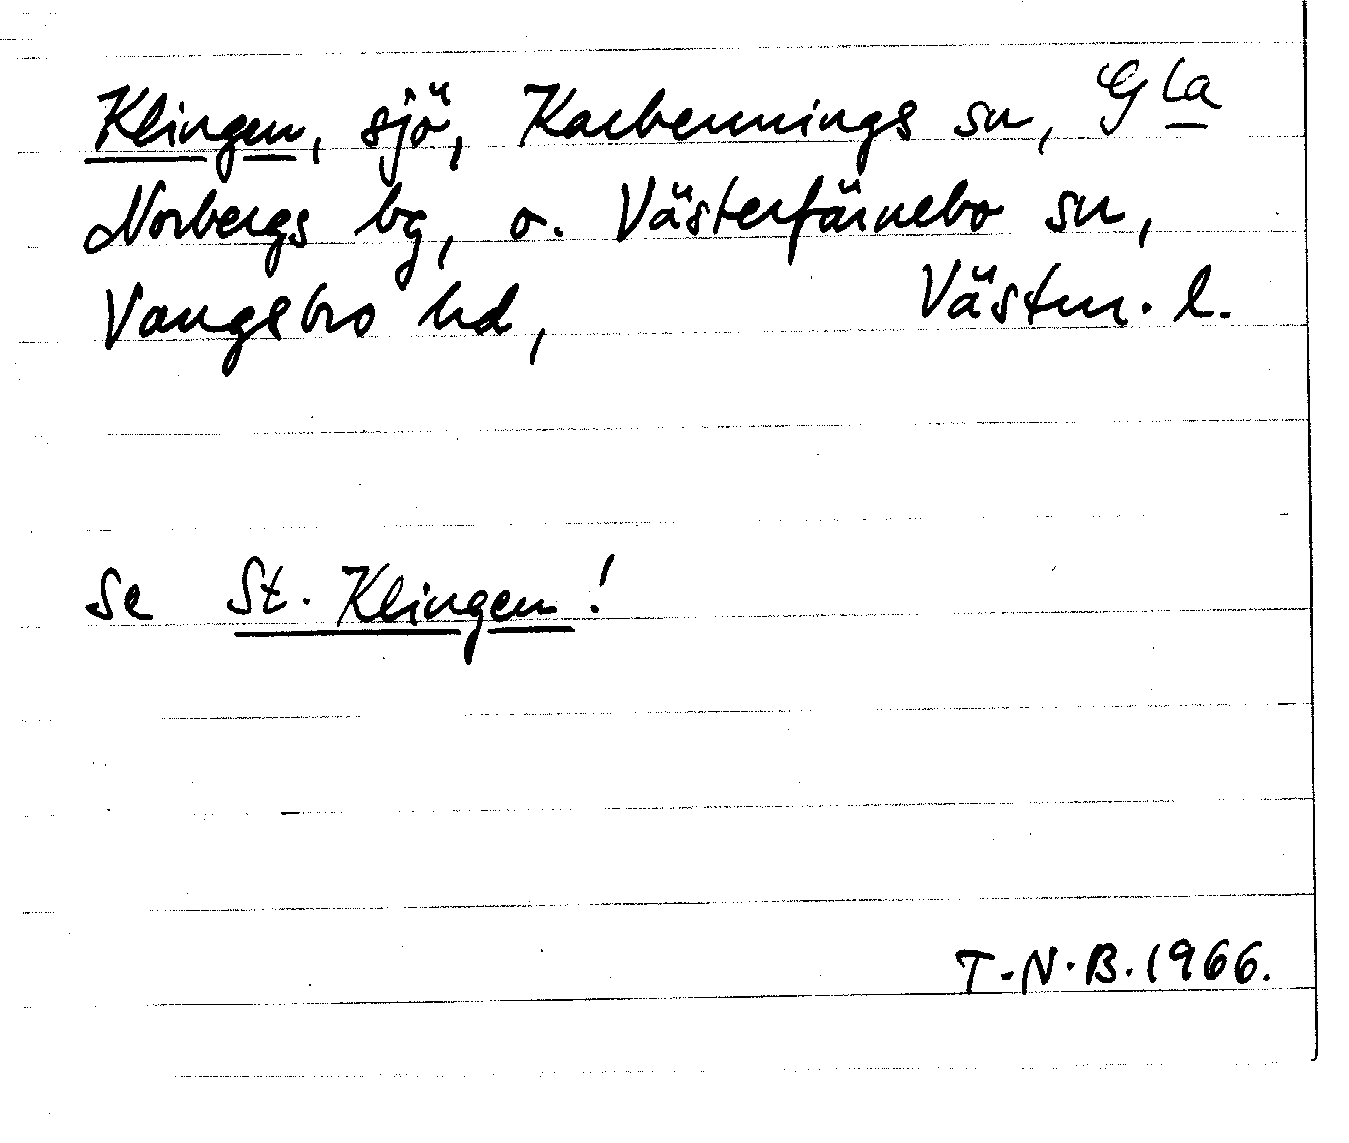 Klingen, sjö, Karbennings sn, G la
Norbergs bg, o. Västerfärnebo sn,
Vangsbro hd, Västm. l.
Se St. Klingen!
T-N.B. 1966.